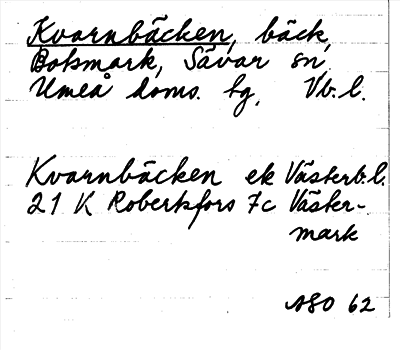 Kvarnbäcken, bäck,
Botsmark, Sävar sn,
Umeå doms. tg, Vb. l.
Kvarnbäcken ek Västerb. l.
21 K Robertsfors 7c Väster-
mark
ASO 62